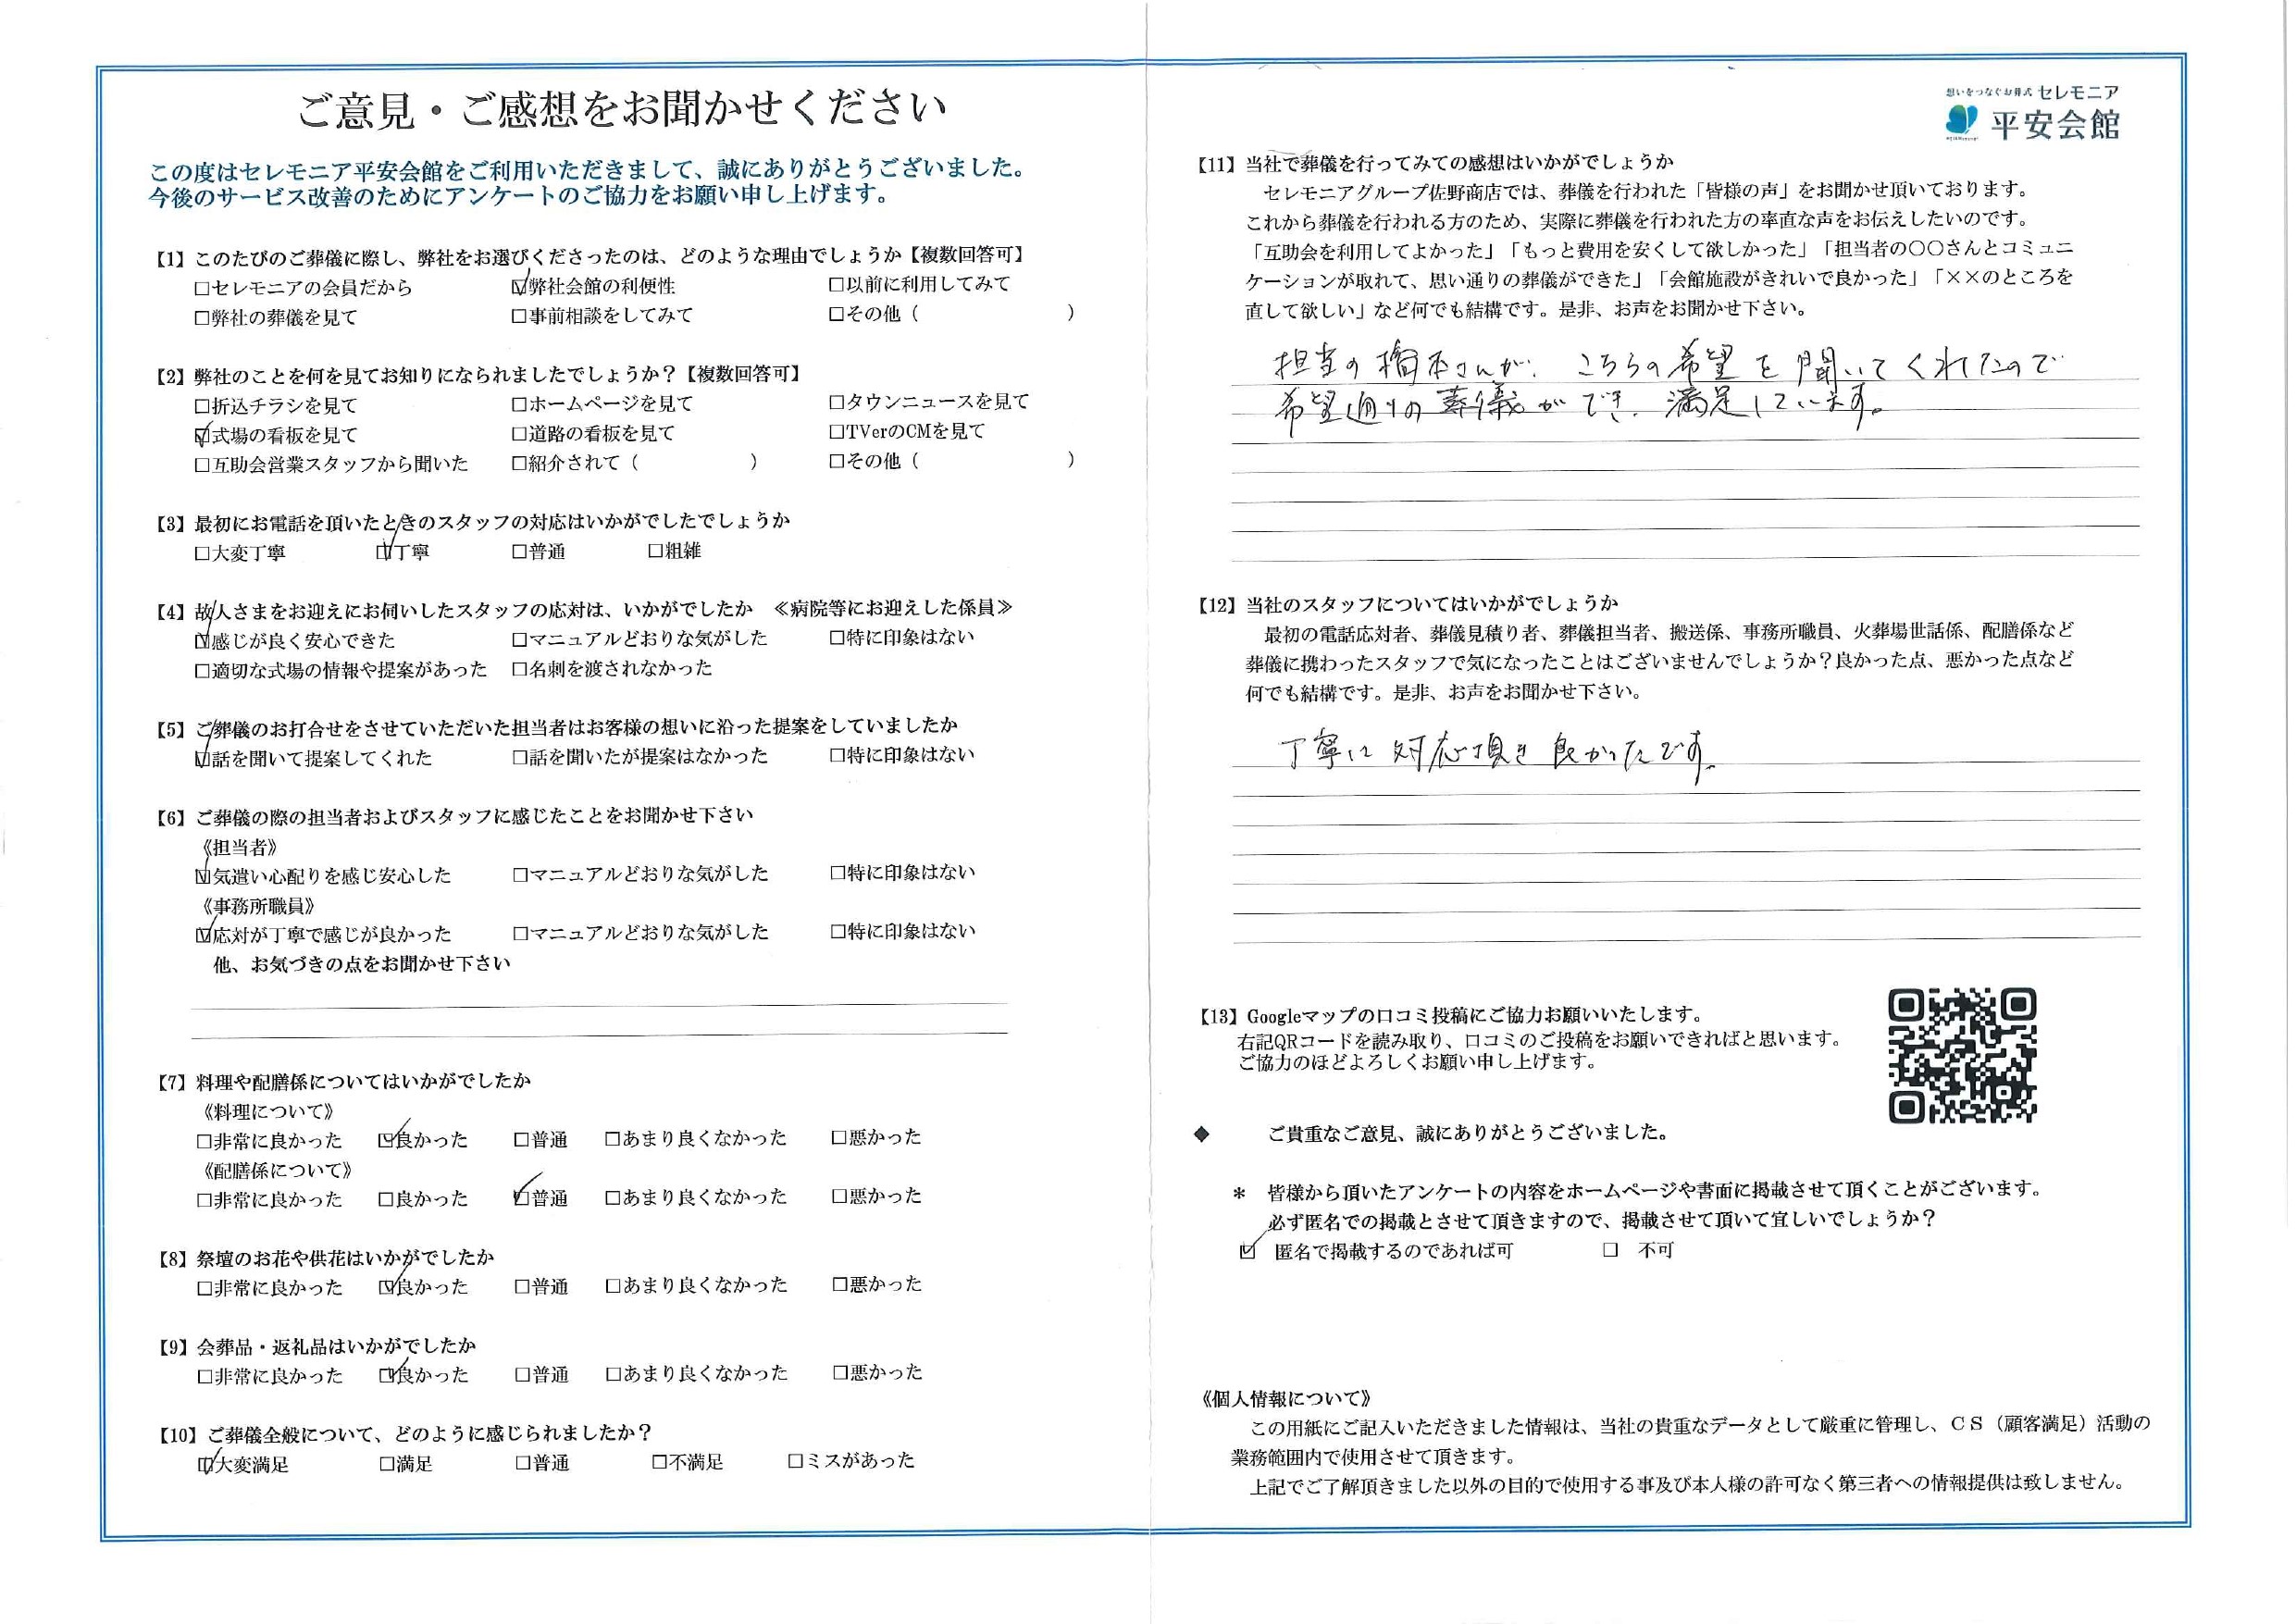 ご意見・ご感想をお聞かせください
この度はセレモニア平安会館をご利用いただきまして、誠にありがとうございました。
今後のサービス改善のためにアンケートのご協力をお願い申し上げます。
【1】このたびのご葬儀に際し、弊社をお選びくださったのは、どのような理由でしょうか【複数回答可】
□セレモニアの会員だから ☑弊社会館の利便性 □以前に利用してみて
□弊社の葬儀を見て □事前相談をしてみて □その他（ ）
【2】弊社のことを何を見てお知りになられましたでしょうか？【複数回答可】
□折込チラシを見て □ホームページを見て □タウンニュースを見て
☑式場の看板を見て □道路の看板を見て □TVerのCMを見て
□互助会営業スタッフから聞いた □紹介されて（ ） □その他（ ）
【3】最初にお電話を頂いたときのスタッフの対応はいかがでしたでしょうか
□大変丁寧 ☑丁寧 □普通 □粗雑
【4】故人さまをお迎えにお伺いしたスタッフの応対は、いかがでしたか ≪病院等にお迎えした係員≫
☑感じが良く安心できた □マニュアルどおりな気がした □特に印象はない
□適切な式場の情報や提案があった □名刺を渡されなかった
【5】ご葬儀のお打合せをさせていただいた担当者はお客様の想いに沿った提案をしていましたか
☑話を聞いて提案してくれた □話を聞いたが提案はなかった □特に印象はない
【6】ご葬儀の際の担当者およびスタッフに感じたことをお聞かせ下さい
《担当者》
☑気遣い心配りを感じ安心した □マニュアルどおりな気がした □特に印象はない
《事務所職員》
☑応対が丁寧で感じが良かった □マニュアルどおりな気がした □特に印象はない
他、お気づきの点をお聞かせ下さい
【7】料理や配膳係についてはいかがでしたか
《料理について》
□非常に良かった ☑良かった □普通 □あまり良くなかった □悪かった
《配膳係について》
□非常に良かった □良かった ☑普通 □あまり良くなかった □悪かった
【8】祭壇のお花や供花はいかがでしたか
□非常に良かった ☑良かった □普通 □あまり良くなかった □悪かった
【9】会葬品・返礼品はいかがでしたか
□非常に良かった ☑良かった □普通 □あまり良くなかった □悪かった
【10】ご葬儀全般について、どのように感じられましたか？
☑大変満足 □満足 □普通 □不満足 □ミスがあった
想いをつなぐお葬式 セレモニア
平安会館
【11】当社で葬儀を行ってみての感想はいかがでしょうか
セレモニアグループ佐野商店では、葬儀を行われた「皆様の声」をお聞かせ頂いております。
これから葬儀を行われる方のため、実際に葬儀を行われた方の率直な声をお伝えしたいのです。
「互助会を利用してよかった」「もっと費用を安くして欲しかった」「担当者の〇〇さんとコミュニ
ケーションが取れて、思い通りの葬儀ができた」「会館施設がきれいで良かった」「××のところを
直して欲しい」など何でも結構です。是非、お声をお聞かせ下さい。
担当の橋本さんが、こちらの希望を聞いてくれたので
希望通りの葬儀ができ、満足しています。
【12】当社のスタッフについてはいかがでしょうか
最初の電話応対者、葬儀見積り者、葬儀担当者、搬送係、事務所職員、火葬場世話係、配膳係など
葬儀に携わったスタッフで気になったことはございませんでしょうか？良かった点、悪かった点など
何でも結構です。是非、お声をお聞かせ下さい。
丁寧に対応頂き良かったです。
【13】Googleマップの口コミ投稿にご協力お願いいたします。
右記QRコードを読み取り、口コミのご投稿をお願いできればと思います。
ご協力のほどよろしくお願い申し上げます。
◆ ご貴重なご意見、誠にありがとうございました。
＊ 皆様から頂いたアンケートの内容をホームページや書面に掲載させて頂くことがございます。
必ず匿名での掲載とさせて頂きますので、掲載させて頂いて宜しいでしょうか？
☑ 匿名で掲載するのであれば可 □ 不可
《個人情報について》
この用紙にご記入いただきました情報は、当社の貴重なデータとして厳重に管理し、ＣＳ（顧客満足）活動の
業務範囲内で使用させて頂きます。
上記でご了解頂きました以外の目的で使用する事及び本人様の許可なく第三者への情報提供は致しません。